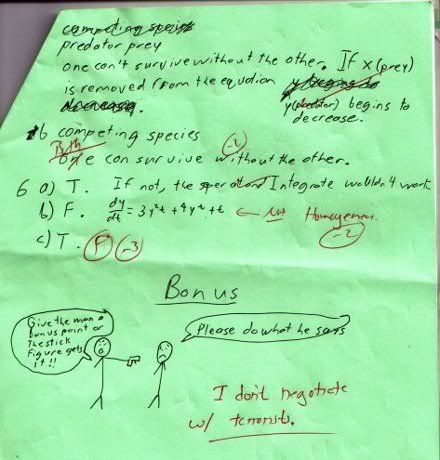 competing species
predator prey
one can't survive without the other. If x(prey)
is removed from the equation y begins to
decrease. y(predator) begins to
decrease.
b competing species -2
Both
One can survive without the other.
6 a) T. If not, the operator Integrate wouldn't work
b) F. dy/dt = 3y²t + 9y²+t ← Not Homogeneous.
-2
c) T. F -3
Bonus
Give the man a
bonus point or
the stick
Figure gets
it!!
Please do what he says
I don't negotiate
w/ terrorists.